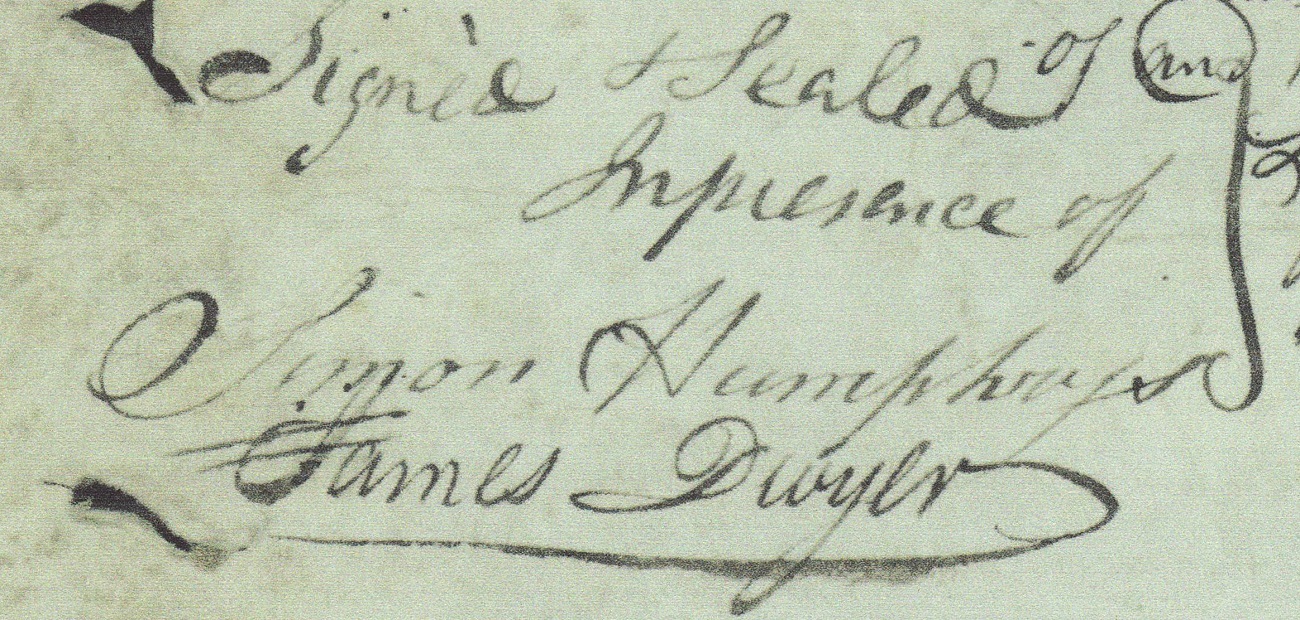 Signed & Sealed of and
Inpresence of
Simon Humphrys
James Dwyer